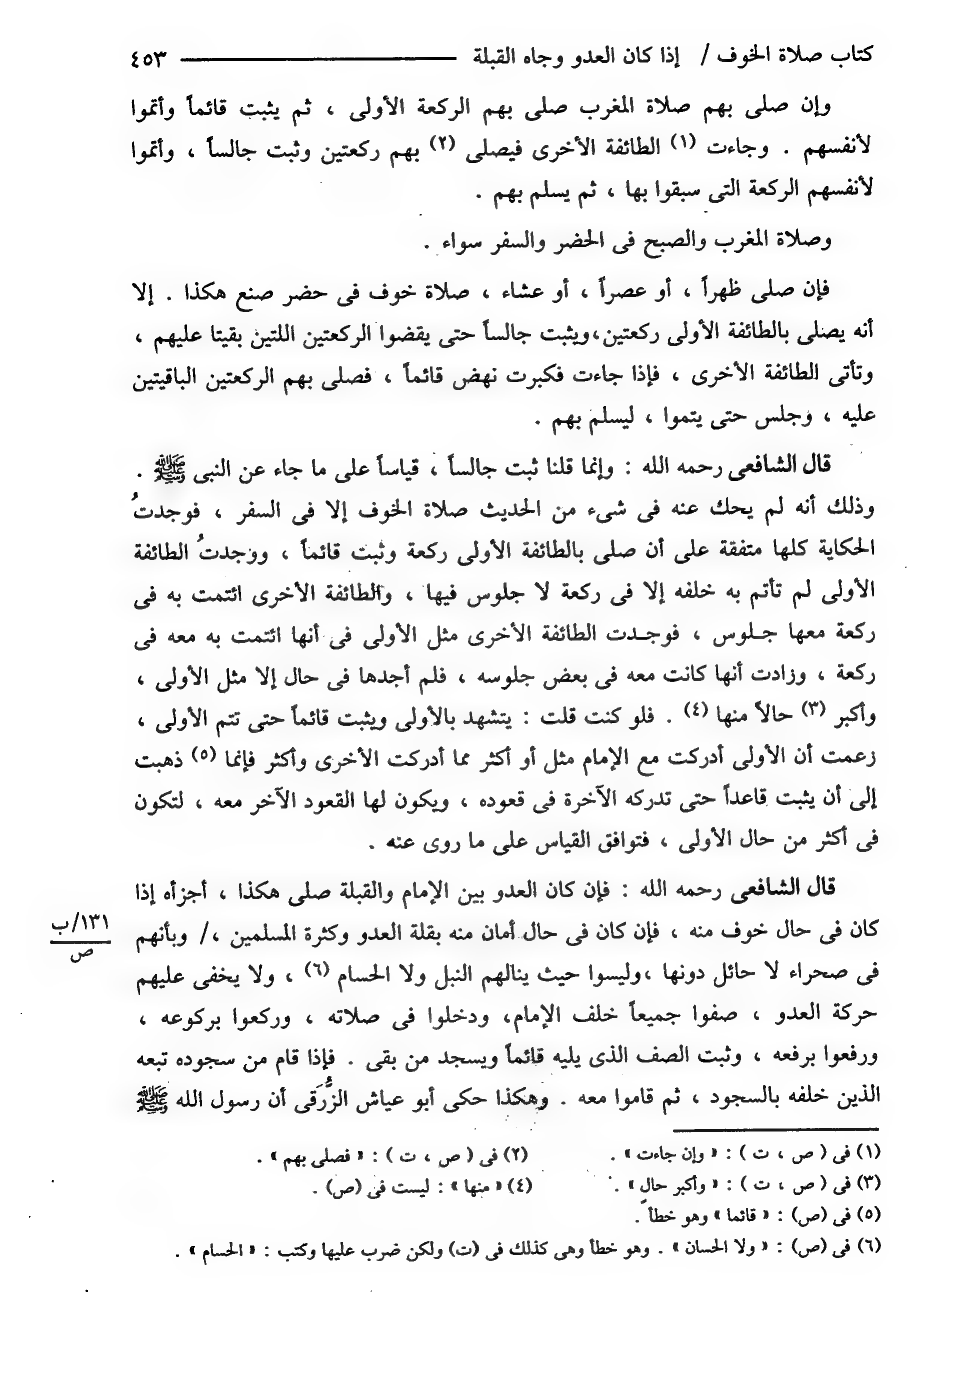 كتاب صلاة الخوف / إذا كان العدو وجاه القبلة ـــــــ ٤٥٣
وإن صلى بهم صلاة المغرب صلى بهم الركعة الأولى ، ثم يثبت قائماً وأتموا
لأنفسهم . وجاءت (١) الطائفة الأخرى فيصلى (٢) بهم ركعتين وثبت جالساً ، وأتموا
لأنفسهم الركعة التى سبقوا بها ، ثم يسلم بهم .
وصلاة المغرب والصبح فى الحضر والسفر سواء .
فإن صلى ظهراً ، أو عصراً ، أو عشاء ، صلاة خوف فى حضر صنع هكذا . إلا
أنه يصلى بالطائفة الأولى ركعتين،ويثبت جالساً حتى يقضوا الركعتين اللتين بقيتا عليهم ،
وتأتى الطائفة الأخرى ، فإذا جاءت فكبرت نهض قائماً ، فصلى بهم الركعتين الباقيتين
عليه ، وجلس حتى يتموا ، ليسلم بهم .
قال الشافعى رحمه الله : وإنما قلنا ثبت جالساً ، قياساً على ما جاء عن النبى ﷺ .
وذلك أنه لم يحك عنه فى شىء من الحديث صلاة الخوف إلا فى السفر ، فوجدتُ
الحكاية كلها متفقة على أن صلى بالطائفة الأولى ركعة وثبت قائماً ، ووجدتُ الطائفة
الأولى لم تأتم به خلفه إلا فى ركعة لا جلوس فيها ، والطائفة الأخرى ائتمت به فى
ركعة معها جـلوس ، فوجـدت الطائفة الأخرى مثل الأولى فى أنها ائتمت به معه فى
ركعة ، وزادت أنها كانت معه فى بعض جلوسه ، فلم أجدها فى حال إلا مثل الأولى ،
وأكبر (٣) حالاً منها (٤) . فلو كنت قلت : يتشهد بالأولى ويثبت قائماً حتى تتم الأولى ،
زعمت أن الأولى أدركت مع الإمام مثل أو أكثر مما أدركت الأخرى وأكثر فإنما (٥) ذهبت
إلى أن يثبت قاعداً حتى تدركه الآخرة فى قعوده ، ويكون لها القعود الآخر معه ، لتكون
فى أكثر من حال الأولى ، فتوافق القياس على ما روى عنه .
قال الشافعى رحمه الله : فإن كان العدو بين الإمام والقبلة صلى هكذا ، أجزأه إذا
كان فى حال خوف منه ، فإن كان فى حال أمان منه بقلة العدو وكثرة المسلمين ،/ وبأنهم
١٣١/ب
ص
فى صحراء لا حائل دونها ،وليسوا حيث ينالهم النبل ولا الحسام (٦) ، ولا يخفى عليهم
حركة العدو ، صفوا جميعاً خلف الإمام، ودخلوا فى صلاته ، وركعوا بركوعه ،
ورفعوا برفعه ، وثبت الصف الذى يليه قائماً ويسجد من بقى . فإذا قام من سجوده تبعه
الذين خلفه بالسجود ، ثم قاموا معه . وهكذا حكى أبو عياش الزُّرَقى أن رسول الله ﷺ
(١) فى ( ص ، ت ) : « وإن جاءت » . (٢) فى ( ص ، ت ) : « فصلى بهم » .
(٣) فى ( ص ، ت ) : « وأكبر حال » . (٤) « منها » : ليست فى (ص) .
(٥) فى (ص) : « قائما » وهو خطأ .
(٦) فى (ص) : « ولا الحسان » . وهو خطأ وهى كذلك فى (ت) ولكن ضرب عليها وكتب : « الحسام » .